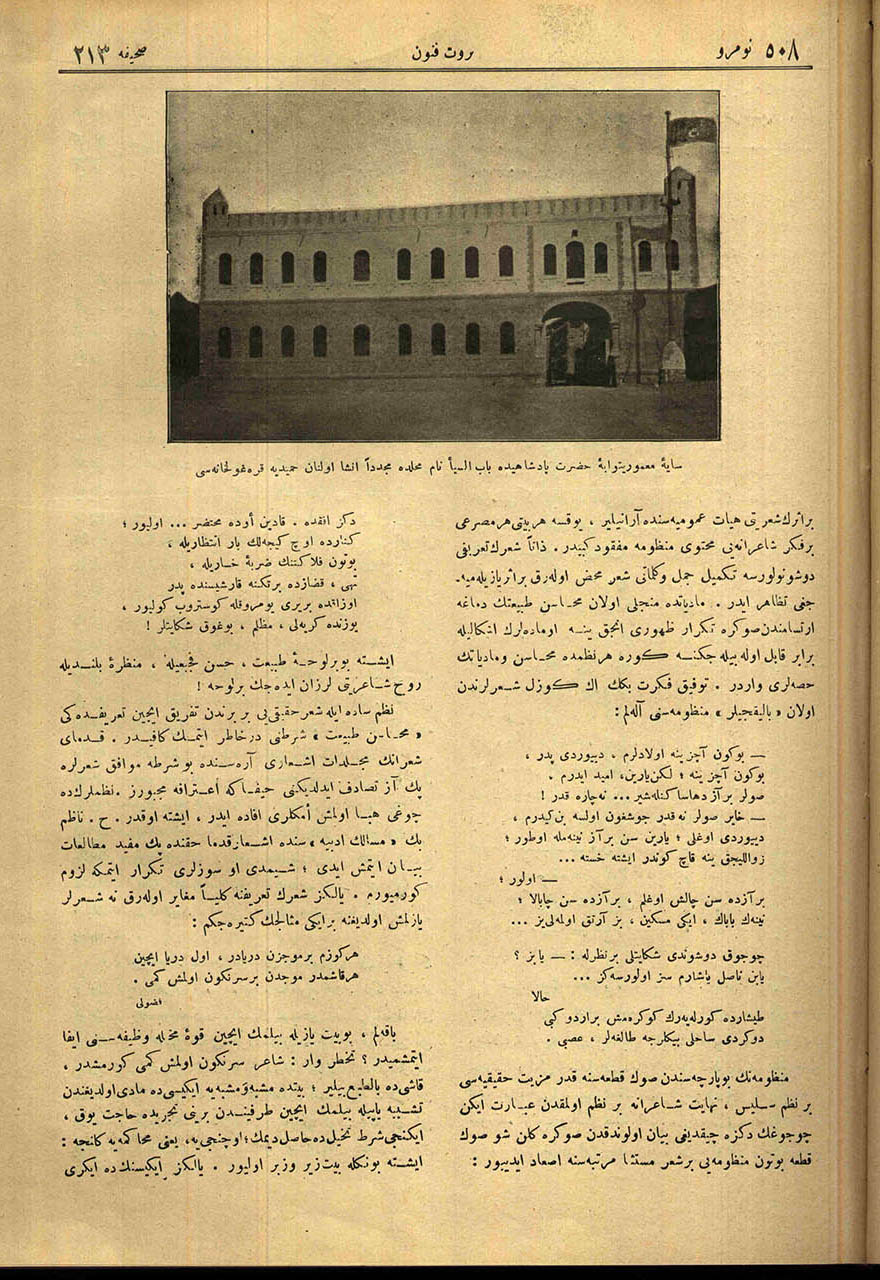 نومرو ٥٠٨
ثروت فنون
صحیفه ٢١٣
سایۀ معموریتوایۀ حضرت پادشاهیده باب السیأ نام محلده مجدداً انشا اولنان حمیدیه قره‌غولخانه‌سی
براثرك شعریتی هیأت عمومیه‌سنده آرانیلیر ، یوقسه هربیتی هرمصرعی
برفكر شاعرانه‌یی محتوی منظومه مفقود كبیدر . ذاتاً شعرك تعریفی
دوشونولورسه تكمیل جمل وكلماتی شعر محض اوله‌رق براثر یازیله‌میه‌-
جغی تظاهر ایدر . مادیاتده منجلی اولان محاسن طبیعتك دماغه
ارتسامندن صوكره تكرار ظهوری آنجق ینه اوماده‌لرك اشكالیله
برابر قابل اوله بیله جكنه كوره هرنظمده محاسن ومادیاتك
حصه‌لری واردر . توفیق فكرت بكك اك كوزل شعرلرندن
اولان « بالیقجیلر » منظومه‌سنی آله‌لم :
— بوكون آچز ینه اولادلرم ، دییوردی پدر ،
بوكون آچز ینه ؛ لكن یارین ، امید ایدرم ،
صولر برآز دها ساكنله‌شیر... نه چاره قدر !
— خایر صولر نه قدر جوشغون اولسه بن كیدرم ،
دییوردی اوغلی ؛ یارین سن برآز نینه‌مله اوطور ؛
زواللیجق ینه قاچ كوندر ایشته خسته ...
— اولور ؛
برآزده سن چالش اوغلم ، برآزده سن چابالا ؛
نینه‌ك باباك ، ایكی مسكین ، بز آرتق اولمه‌لی‌یز ...
چوجوق دوشوندی شكایتلی برنظرله : — یا بز ؟
یابن ناصل یاشارم سز اولورسه‌كز ...
حالا
طیشارده كورله‌یه‌رك كوكره‌مش براردو كبی
دوكردی ساحلی بیكلرجه طالغه‌لر ، عصبی .
منظومه‌نك بوپارچه‌سندن صوك قطعه‌سنه قدر مزیت حقیقیه‌سی
بر نظم سلیس ، نهایت شاعرانه بر نظم اولمقدن عبارت ایكن
چوجوغك دكزه چیقدیغی بیان اولوندقدن صوكره كلن شو صوك
قطعه بوتون منظومه‌یی برشعر مستثنا مرتبه‌سنه اصعاد ایدییور :
دكز انقده . قادین أوده محتضر ... اولیور ؛
كنارده اوچ كیجه‌لك بار انتظاریله ،
بوتون فلاكتنك ضربۀ خساریله ،
تهی ، قضازده برتكنه قارشیسنده پدر
اوزاقده یریری یومروقله كوستروب كولیور ،
یوزنده كریه‌لی ، مظلم ، بوغوق شكایتلر !
ایشته بوبرلوحۀ طبیعت ، حسن فجیعیله ، منظرۀ بلندیله
روح شاعریتی لرزان ایده‌جك برلوحه !
نظم ساده ایله شعر حقیقی‌یی بر برندن تفریق ایچین تعریفده‌كی
« محاسن طبیعت » شرطنی درخاطر ایتمك كافیدر . قدمای
شعرانك مجلدات اشعاری آره‌سنده بوشرطه موافق شعرلره
پك آز تصادف ایدلدیكنی حیفا كه اعترافه مجبورز . نظملرك ده
چوغی هبا اولمش أمكلری افاده ایدر ، ایشته اوقدر . ح . ناظم
بك « مسالك ادبیه » سنده اشعار قدما حقنده پك مفید مطالعات
بیان ایتمش ایدی ؛ شیمدی او سوزلری تكرار ایتمكه لزوم
كورمیورم . یالكز شعرك تعریفنه كلیاً مغایر اوله‌رق نه شعرلر
یازلمش اولدیغنه برایكی مثالجك كتیره‌جكم :
هركوزم برموجزن دریادر ، اول دریا ایچین
هرقاشمدر موجدن برسرنكون اولمش كمی .
فضولی
باقه‌لم ، بوبیت یازیله بیلمك ایچین قوۀ مخیله وظیفه‌سنی ایفا
ایتمشمیدر ؟ تخطر وار : شاعر سرنكون اولمش كمی كورمشدر ،
قاشی ده بالطبع بیلیر ؛ بیتده مشبه ومشبه‌به ایكیسی ده مادی اولدیغندن
تشبیه یاپیله بیلمك ایچین طرفیندن برنی تجریده حاجت یوق ،
ایكنجی شرط تخیل ده حاصل دیمك ؛ اوچنجی‌یه ، یعنی محاكمه‌یه كلنجه :
ایشته بونكله بیت زیر وزبر اولیور . یالكز ایكیسنك ده ایكری